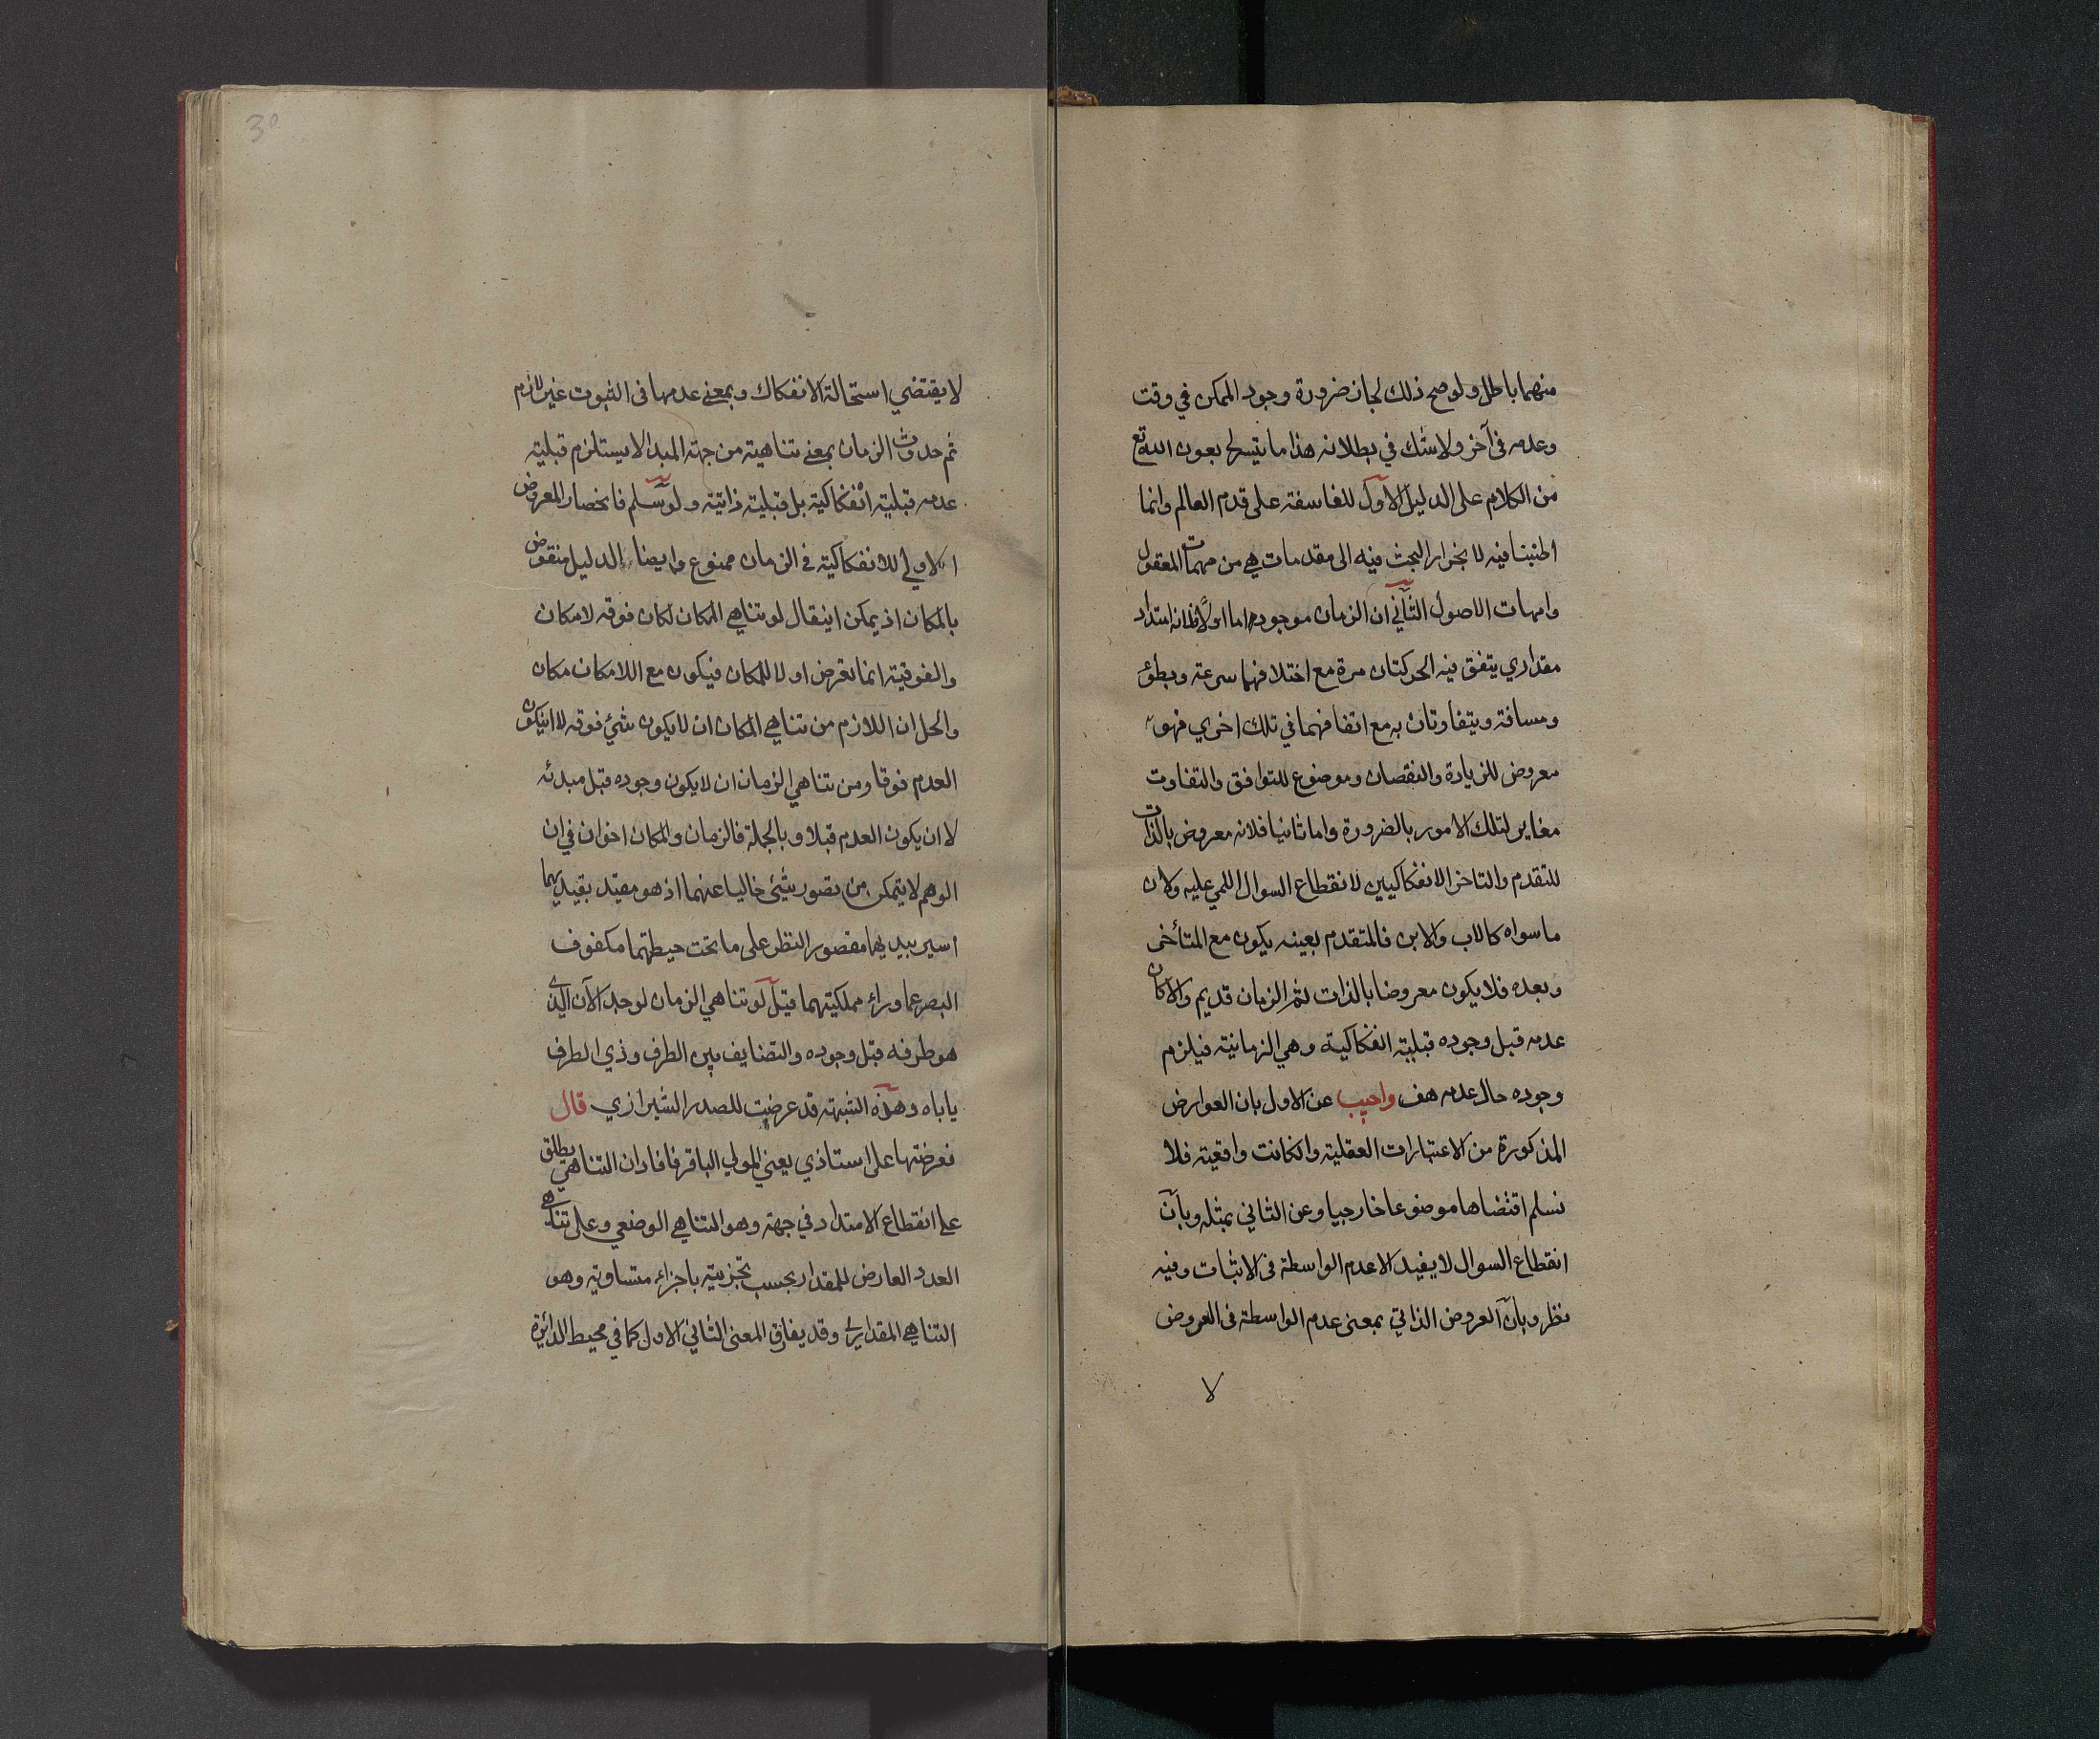 منهما باطل ولو صح ذلك لجاز ضرورة وجود الممكن في وقت
وعدمه في آخر ولا شك في بطلانه هذا ما تيسر لي بعون الله تع
من الكلام على الدليل الاول للفاسفة على قدم العالم وانما
اطنبنا فيه لانجرار البحث فيه الى مقدمات هي من مهمات المعقول
وامهات الاصول الثاني ان الزمان موجود اما اولا فلانه امتداد
مقداري يتفق فيه الحركتان مرة مع اختلافهما سرعة وبطؤ
ومسافة ويتفاوتان به مع اتفاقهما في تلك اخرى فهو
معروض للزيادة والنقصان وموضوع للتوافق والتفاوت
مغاير لتلك الامور بالضرورة واما ثانيا فلانه معروض بالذات
للتقدم والتاخر الانفكاكيين لانقطاع السوال اللمي عليه وكان
ما سواه كالاب والابن فالمتقدم بعينه يكون مع المتأخر
وبعده فلا يكون معروضا بالذات ثم الزمان قديم والا كان
عدمه قبل وجوده قبلية انفكاكية وهي الزمانية فيلزم
وجوده حال عدمه هف واجيب عن الاول بان العوارض
المذكورة من الاعتبارات العقلية وان كانت واقعية فلا
نسلم اقتضاها موضوعا خارجيا وعن الثاني بمثله وبان
انقطاع السوال لا يفيد الا عدم الواسطة في الاثبات وفيه
نظر وبان العروض الذاتي بمعنى عدم الواسطة في العروض
لا
30
لا يقتضي استحالة الانفكاك وبمعنى عدمها في الثبوت غير لازم
ثم حدوث الزمان بمعنى تناهيه من جهة المبدا لا يستلزم قبلية
عدمه قبلية انفكاكية بل قبلية ذاتية ولو سلم فانحصار المعروض
الاولي للانفكاكية في الزمان ممنوع وايضا الدليل منقوض
بالمكان اذ يمكن ان يقال لو تناهي المكان لكان فوقه لا مكان
والفوقية انما تعرض اولا للمكان فيكون مع اللامكان مكان
والحل ان اللازم من تناهي المكان ان لا يكون شئ فوقه لا ان يكون
العدم فوقا ومن تناهي الزمان ان لا يكون وجوده قبل مبدئه
لا ان يكون العدم قبلا وبالجملة فالزمان والمكان اخوان في ان
الوهم لا يتمكن من تصور شئ خاليا عنهما اذ هو مقيد بقيديهما
اسير بيديهما مقصور النظر على ما تحت حيطتهما مكفوف
البصر عما وراء مملكتيهما قيل لو تناهي الزمان لوجد الآن الذي
هو طرفه قبل وجوده والتضايف بين الطرف وذي الطرف
ياباه وهذه الشبهة قد عرضت للصدر الشيرازي قال
فعرضتها على استاذي يعني المولي الباقر فافاد ان التناهي يطلق
على انقطاع الامتداد في جهة وهو التناهي الوضعي وعلى تناهي
العدد العارض للمقدار بحسب تجزيته باجزاء متساوية وهو
التناهي المقداري وقد يفارق المعنى الثاني الاول كما في محيط الدائرة